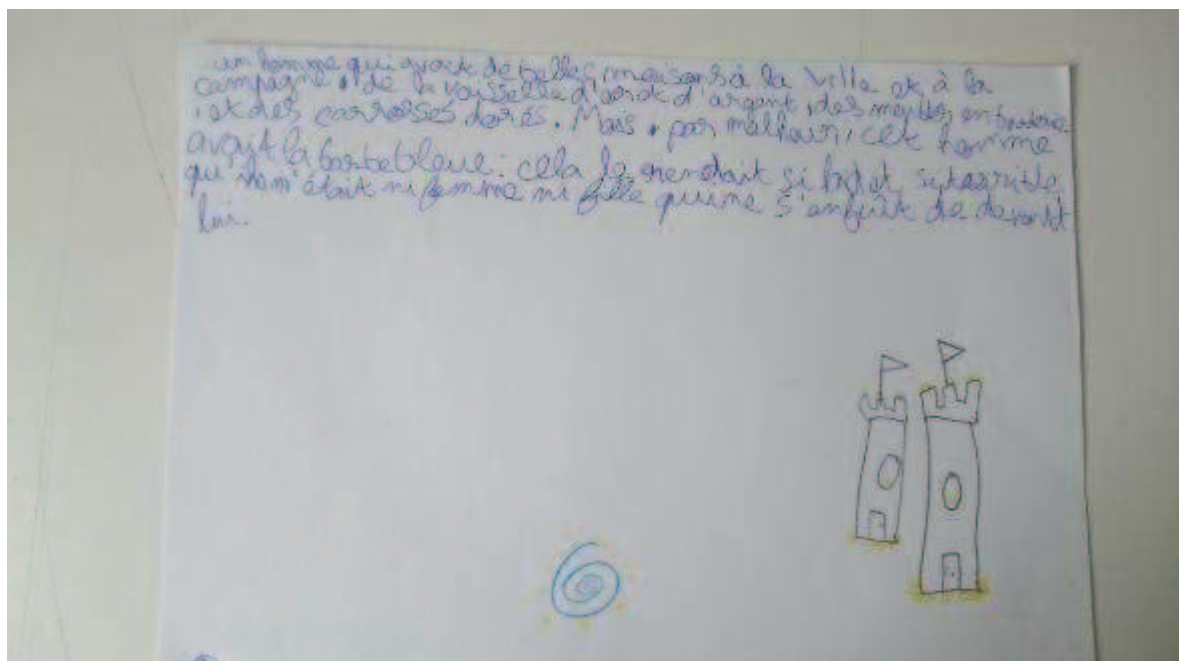 un homme qui avait de belles maisons à la ville et à la
campagne, de la vaisselle d'or et d'argent, des meubles en broderie
, et des carrosses dorés. Mais, par malheur, cet homme
avait la barbe bleue : cela le rendait si laid et si terrible
qu'il n'était ni femme ni fille qui ne s'enfuît de devant
lui.